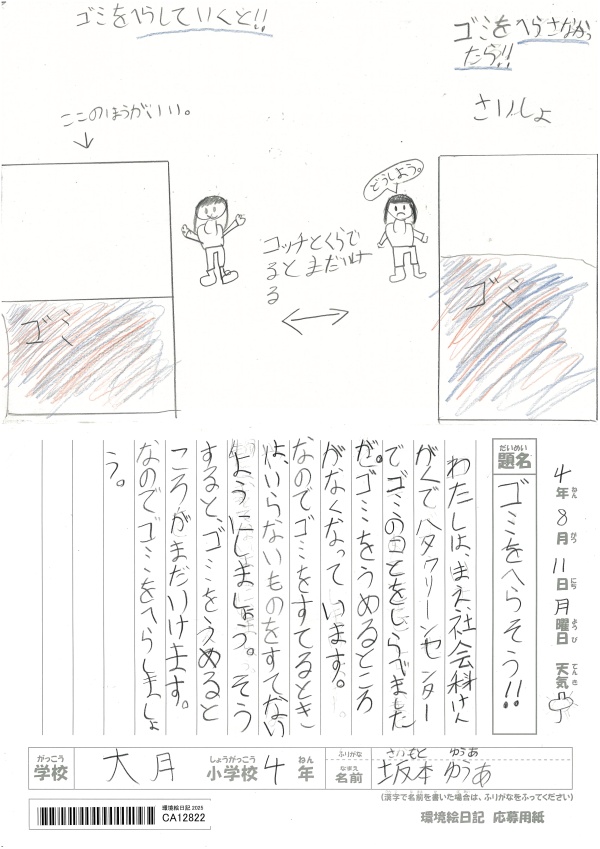 ゴミをへらしていくと!!
ゴミをへらさなかっ
たら!!
さいしょ
ここのほうがいい。
どうしよう。
コッチとくらべ
ると まだいけ
る
ゴミ
ゴミ
4年8月11日月曜日 天気
ねん がつ にち ようび てんき
だいめい
題名 ゴミをへらそう!!
わたしは、まえ、社会科けん
がくで ハタクリーンセンター
でゴミのことをしらべました
が、ゴミをうめるところ
がなくなっています。
なのでゴミをすてるとき
は、いらないものをすてない
ようにしましょう。そう
すると、ゴミをうめると
ころがまだいけます。
なのでゴミをへらしましょ
う。
がっこう しょうがっこう ねん
学校 大月 小学校 4 年
ふりがな さかもと ゆうあ
なまえ
名前 坂本 ゆうあ
(漢字で名前を書いた場合は、ふりがなをふってください)
環境絵日記 2025
CA12822
環境絵日記 応募用紙